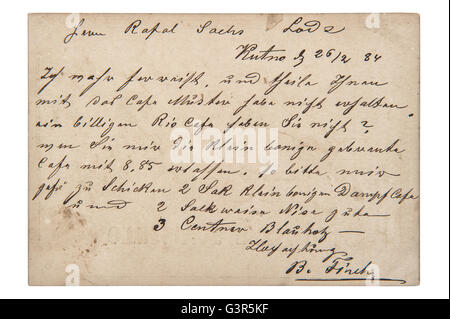 Herrn Rafal Sachs Lodz
Kutno d 26/2 84
Ich wahr ferreist, und theile Ihnen
mit das Cafe Muster habe nicht erhalten
ein billigen Rio Cafe haben Sie nicht?
wen Sie mir die klein bonige gebrante
Cafe mit 8,85 erlassen, so bitte mir
zu Schicken 2 Sak klein bonigen Dampf Cafe
und 2 Sack weise gute
3 Centner Blauholz —
Hochachtung
B.
alamy
Image ID: G3R5KF
www.alamy.com